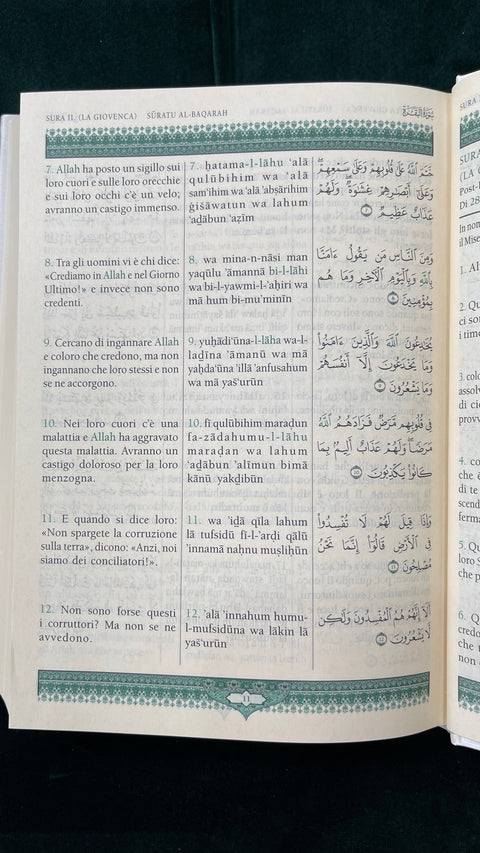 SURA II, (LA GIOVENCA) SŪRATU AL-BAQARAH
7. Allah ha posto un sigillo sui
loro cuori e sulle loro orecchie
e sui loro occhi c'è un velo;
avranno un castigo immenso.
8. Tra gli uomini vi è chi dice:
«Crediamo in Allah e nel Giorno
Ultimo!» e invece non sono
credenti.
9. Cercano di ingannare Allah
e coloro che credono, ma non
ingannano che loro stessi e non
se ne accorgono.
10. Nei loro cuori c'è una
malattia e Allah ha aggravato
questa malattia. Avranno un
castigo doloroso per la loro
menzogna.
11. E quando si dice loro:
«Non spargete la corruzione
sulla terra», dicono: «Anzi, noi
siamo dei conciliatori!».
12. Non sono forse questi
i corruttori? Ma non se ne
avvedono.
7. ḫatama-l-lāhu 'alā
qulūbihim wa 'alā
sam'ihim wa 'alā 'abṣārihim
ġišāwatun wa lahum
'aḏābun 'aẓīm
8. wa mina-n-nāsi man
yaqūlu 'āmannā bi-l-lāhi
wa bi-l-yawmi-l-'aḫiri wa
mā hum bi-mu'minīn
9. yuḫādi'ūna-l-lāha wa-l-
laḏīna 'āmanū wa mā
yaḫda'ūna 'illā 'anfusahum
wa mā yaš'urūn
10. fī qulūbihim maraḍun
fa-zādahumu-l-lāhu
maraḍan wa lahum
'aḏābun 'alīmun bimā
kānū yakḏibūn
11. wa 'iḏā qīla lahum
lā tufsidū fī-l-'arḍi qālū
'innamā naḥnu muṣliḥūn
12. 'alā 'innahum humu-
l-mufsidūna wa lākin lā
yaš'urūn
خَتَمَ ٱللَّهُ عَلَىٰ قُلُوبِهِمْ وَعَلَىٰ سَمْعِهِمْ ۖ
وَعَلَىٰٓ أَبْصَٰرِهِمْ غِشَٰوَةٌ ۖ وَلَهُمْ
عَذَابٌ عَظِيمٌ ٧
وَمِنَ ٱلنَّاسِ مَن يَقُولُ ءَامَنَّا
بِٱللَّهِ وَبِٱلْيَوْمِ ٱلْءَاخِرِ وَمَا هُم
بِمُؤْمِنِينَ ٨
يُخَٰدِعُونَ ٱللَّهَ وَٱلَّذِينَ ءَامَنُوا۟
وَمَا يَخْدَعُونَ إِلَّآ أَنفُسَهُمْ
وَمَا يَشْعُرُونَ ٩
فِى قُلُوبِهِم مَّرَضٌ فَزَادَهُمُ ٱللَّهُ
مَرَضًا ۖ وَلَهُمْ عَذَابٌ أَلِيمٌۢ بِمَا
كَانُوا۟ يَكْذِبُونَ ١٠
وَإِذَا قِيلَ لَهُمْ لَا تُفْسِدُوا۟
فِى ٱلْأَرْضِ قَالُوٓا۟ إِنَّمَا نَحْنُ
مُصْلِحُونَ ١١
أَلَآ إِنَّهُمْ هُمُ ٱلْمُفْسِدُونَ وَلَٰكِن
لَّا يَشْعُرُونَ ١٢
11